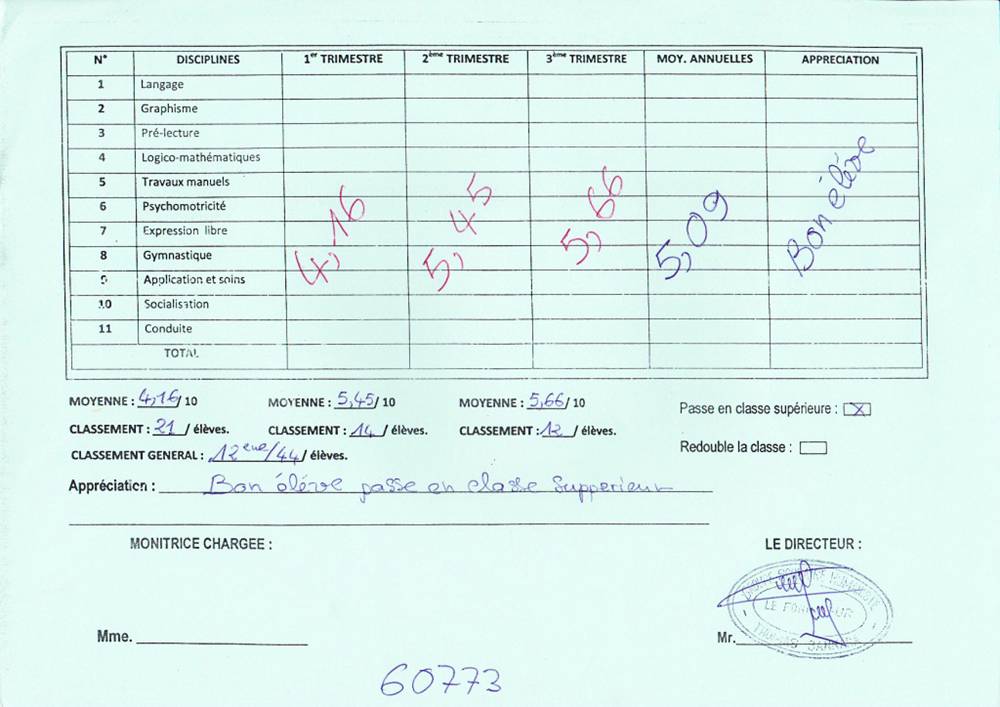 N° DISCIPLINES 1er TRIMESTRE 2ème TRIMESTRE 3ème TRIMESTRE MOY. ANNUELLES APPRECIATION
1 Langage
2 Graphisme
3 Pré-lecture
4 Logico-mathématiques
5 Travaux manuels
6 Psychomotricité
7 Expression libre
8 Gymnastique
9 Application et soins
10 Socialisation
11 Conduite
TOTAL
4,16 5,45 5,66 5,09 Bon élève
MOYENNE : 4,16/ 10 MOYENNE : 5,45/ 10 MOYENNE : 5,66/ 10
Passe en classe supérieure : X
CLASSEMENT : 21 / élèves. CLASSEMENT : 14 / élèves. CLASSEMENT : 12 / élèves.
Redouble la classe :
CLASSEMENT GENERAL : 12ème/44/ élèves.
Appréciation : Bon élève passe en classe Supperieur
MONITRICE CHARGEE : LE DIRECTEUR :
Mme. Mr.
60773